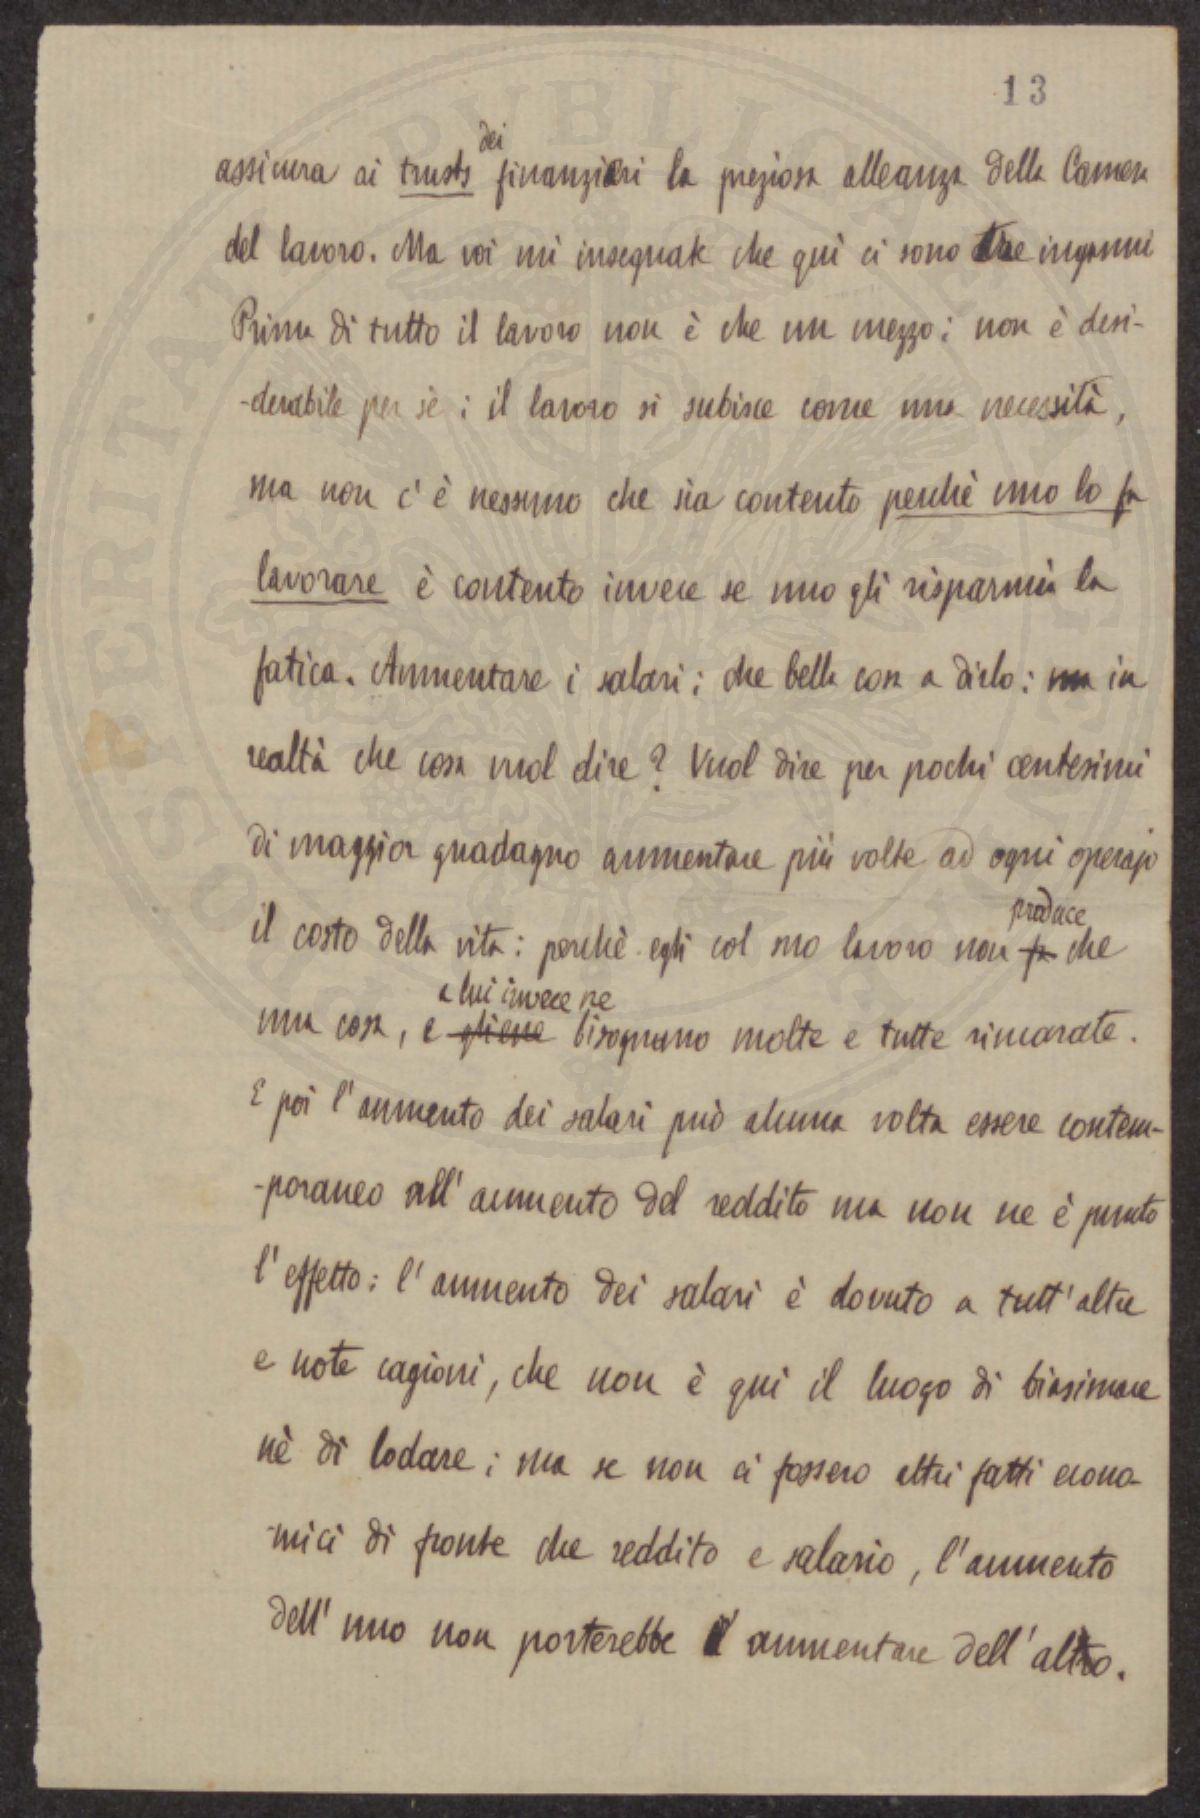 13
dei
assicura ai trusts finanziari la preziosa alleanza della Camera
del lavoro. Ma voi mi insegnate che qui ci sono tre inganni
Prima di tutto il lavoro non è che un mezzo; non è desi-
-derabile per sè; il lavoro si subisce come una necessità,
ma non c'è nessuno che sia contento perchè uno lo fa
lavorare è contento invece se uno gli risparmia la
fatica. Aumentare i salari; che bella cosa a dirlo: ma in
realtà che cosa vuol dire? Vuol dire per pochi centesimi
di maggior guadagno aumentare più volte ad ogni operajo
produce
il costo della vita: perchè egli col suo lavoro non fa che
a lui invece ne
una cosa, e gliene bisognano molte e tutte rincarate.
E poi l'aumento dei salari può alcuna volta essere contem-
-poraneo all'aumento del reddito ma non ne è punto
l'effetto: l'aumento dei salari è dovuto a tutt'altre
e note cagioni, che non è qui il luogo di biasimare
nè di lodare; ma se non ci fossero altri fatti econo-
-mici di fronte che reddito e salario, l'aumento
dell'uno non porterebbe l'aumentare dell'altro.
PUBLICAE
PROSPERITATI